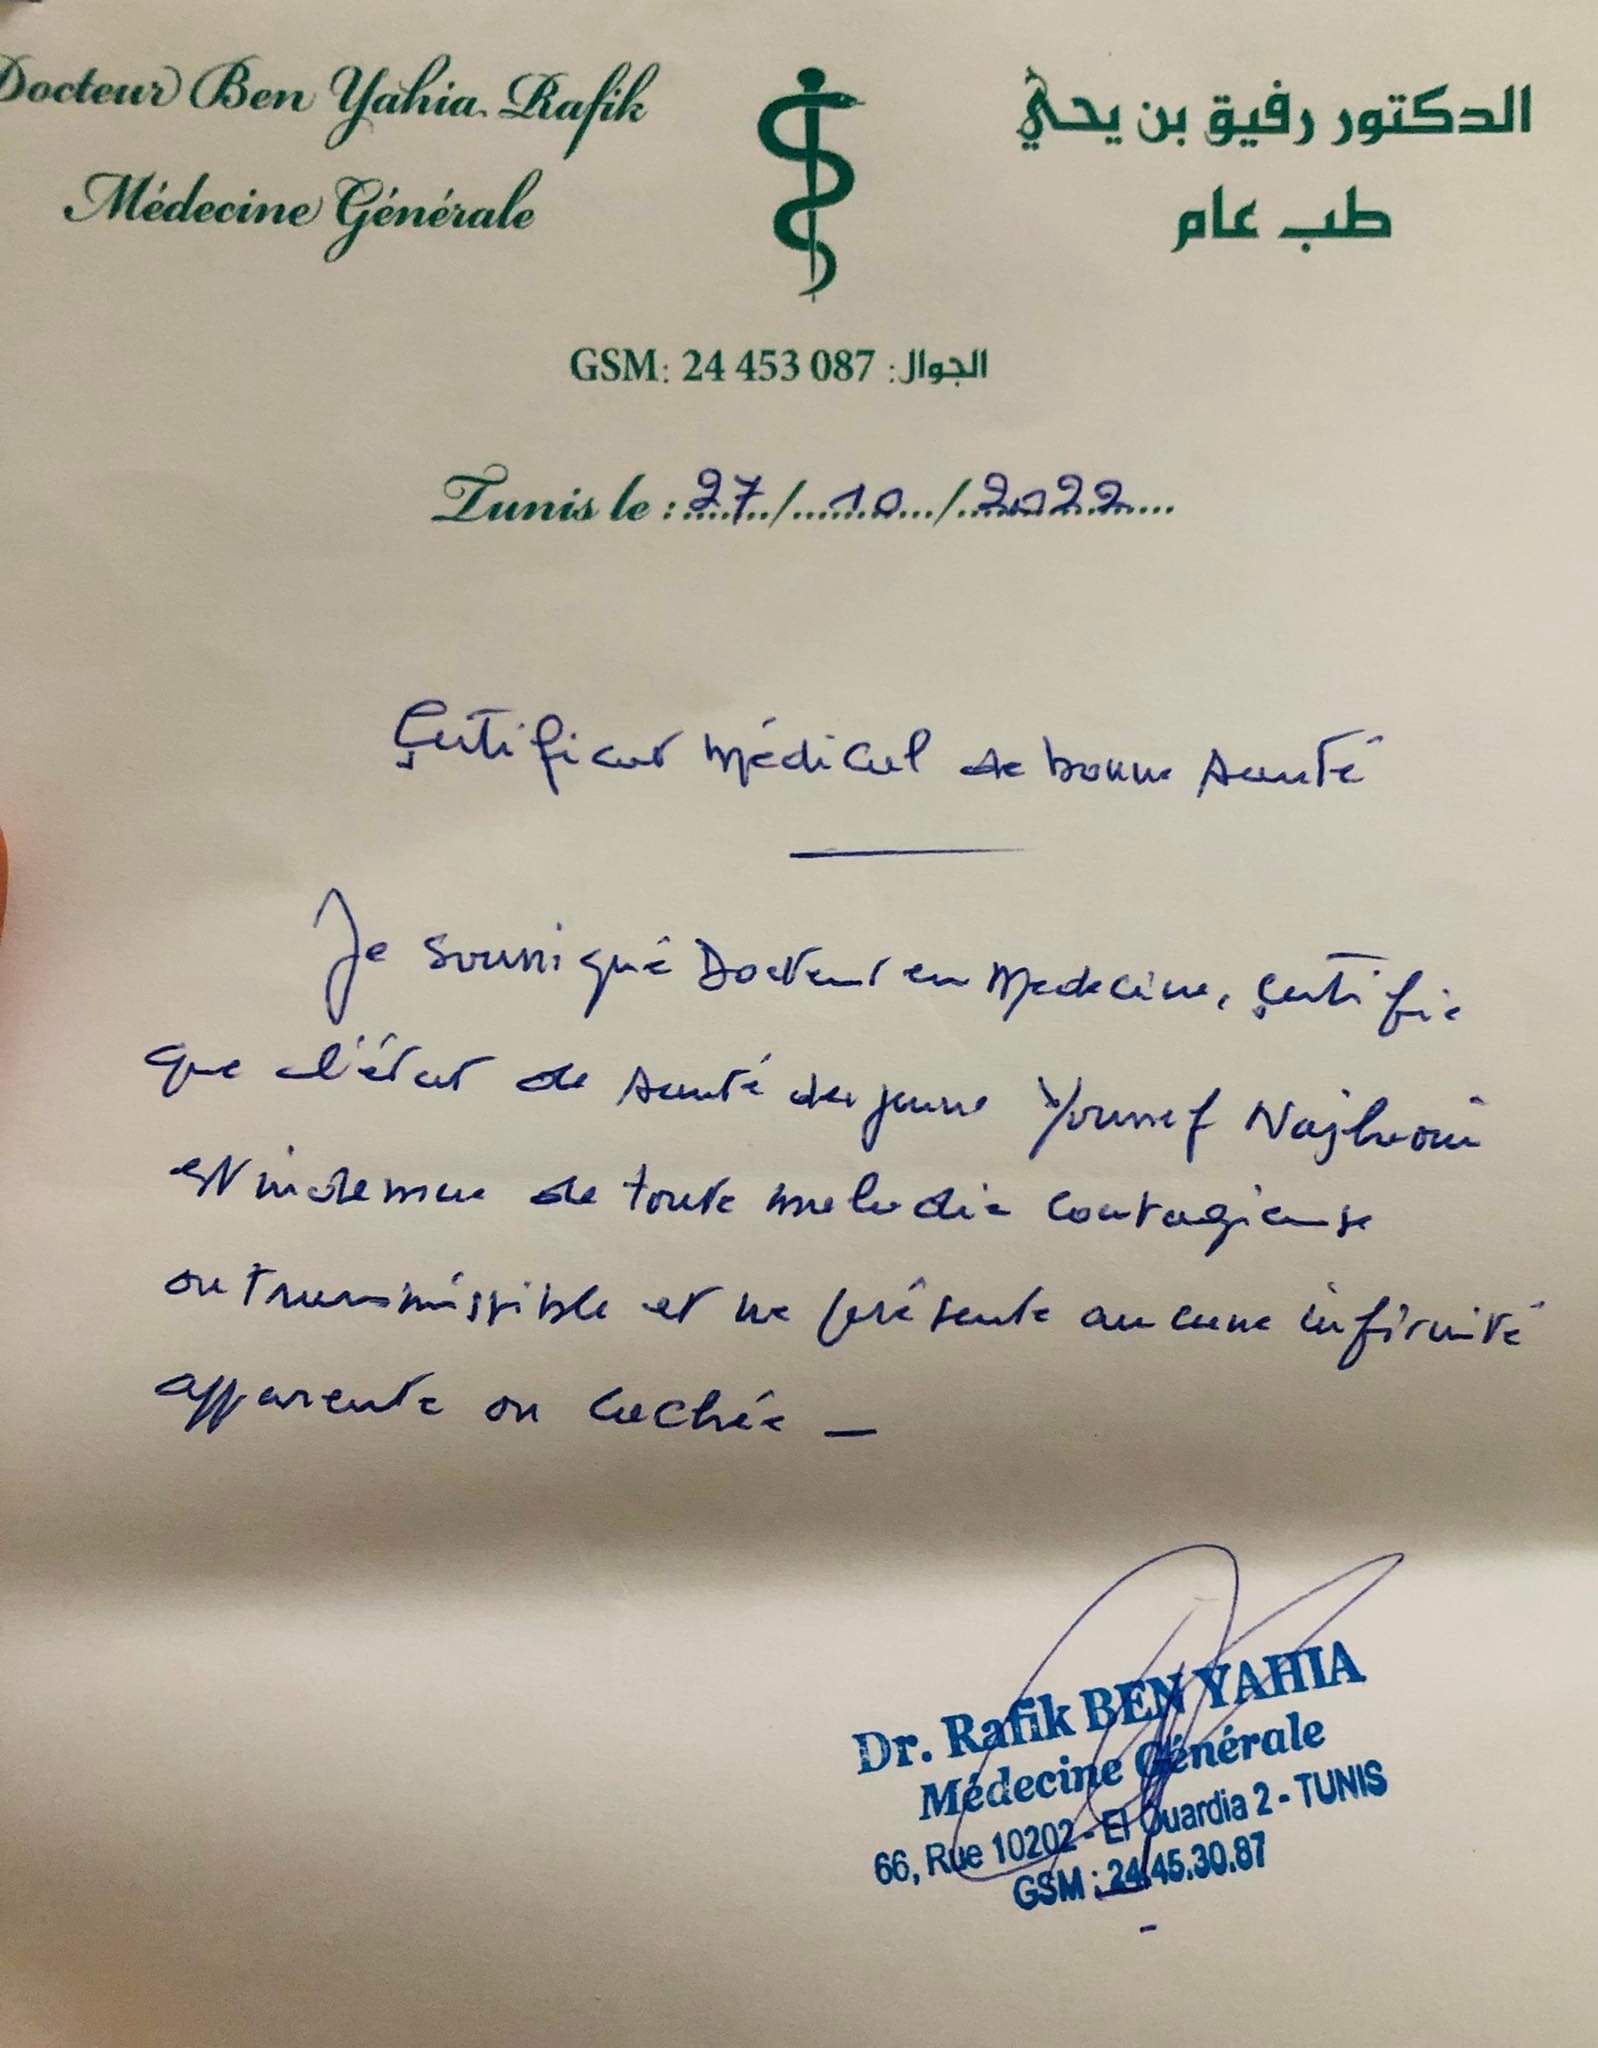 Docteur Ben Yahia Rafik
Médecine Générale
الدكتور رفيق بن يحي
طب عام
GSM: 24 453 087 :الجوال
Tunis le : 27 / 10 / 2022
Certificat médical de bonne santé
Je soussigné Docteur en Medecine, certifie
que l'état de santé du jeune Youssef
est indemne de toute maladie contagieuse
ou transmissible et ne présente aucune infirmité
apparente ou cachée _
Dr. Rafik BEN YAHIA
Médecine Générale
66, Rue 10202 - El Ouardia 2 - TUNIS
GSM : 24.45.30.87